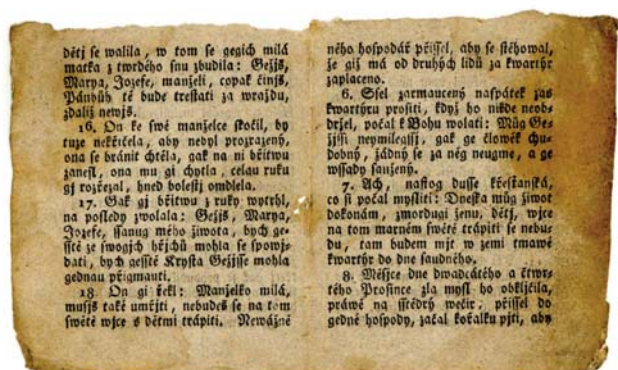 dětj se walila, w tom se gegich milá
matka z twrdého snu zbudila: Gežjš,
Marya, Jozefe, manželi, copak činjš,
Pánbůh tě bude trestati za wraždu,
zdaliž newjš.
16. On ke swé manželce skočil, by
tuze nekřičela, aby nebyl prozrazený,
ona se bránit chtěla, gak na ni břitwu
zanesl, ona mu gi chytla, celau ruku
gj rozřezal, hned bolestj omdlela.
17. Gak gj břitwu z ruky wytrhl,
na posledy zwolala: Gežjš, Marya,
Jozefe, ssanug mého žiwota, bych ge-
sstě ze swogjch hřjchů mohla se spowj-
dati, bych gesstě Krysta Gežjsse mohla
gednau přigmauti.
18. On gi řekl: Manželko milá,
musjš také umřjti, nebudeš se na tom
swětě wjce s dětmi trápiti. Newážně
ného hospodář přissel, aby se stěhowal,
že giž má od druhých lidů za kwartýr
zaplaceno.
6. Ssel zarmaucený naspátek zas
kwartýru prositi, když ho nikde neob-
držel, počal k Bohu wolati: Můg Ge-
žjssi neymilegssj, gak ge člowěk chu-
dobný, žádný se za něg neugme, a ge
wssady saužený.
7. Ach, nastog dusse křesťanská,
co si počal mysliti: Dneska můg žiwot
dokonám, zmordugi ženu, dětj, wjce
na tom marném swětě trápiti se nebu-
du, tam budem mjt w zemi tmawé
kwartýr do dne saudného.
8. Měsjce dne dwadcátého a čtwr-
tého Prosince zla mysl ho obkljčila,
práwě na sstědrý wečir, přissel do
gedné hospody, začal kořalku pjti, aby